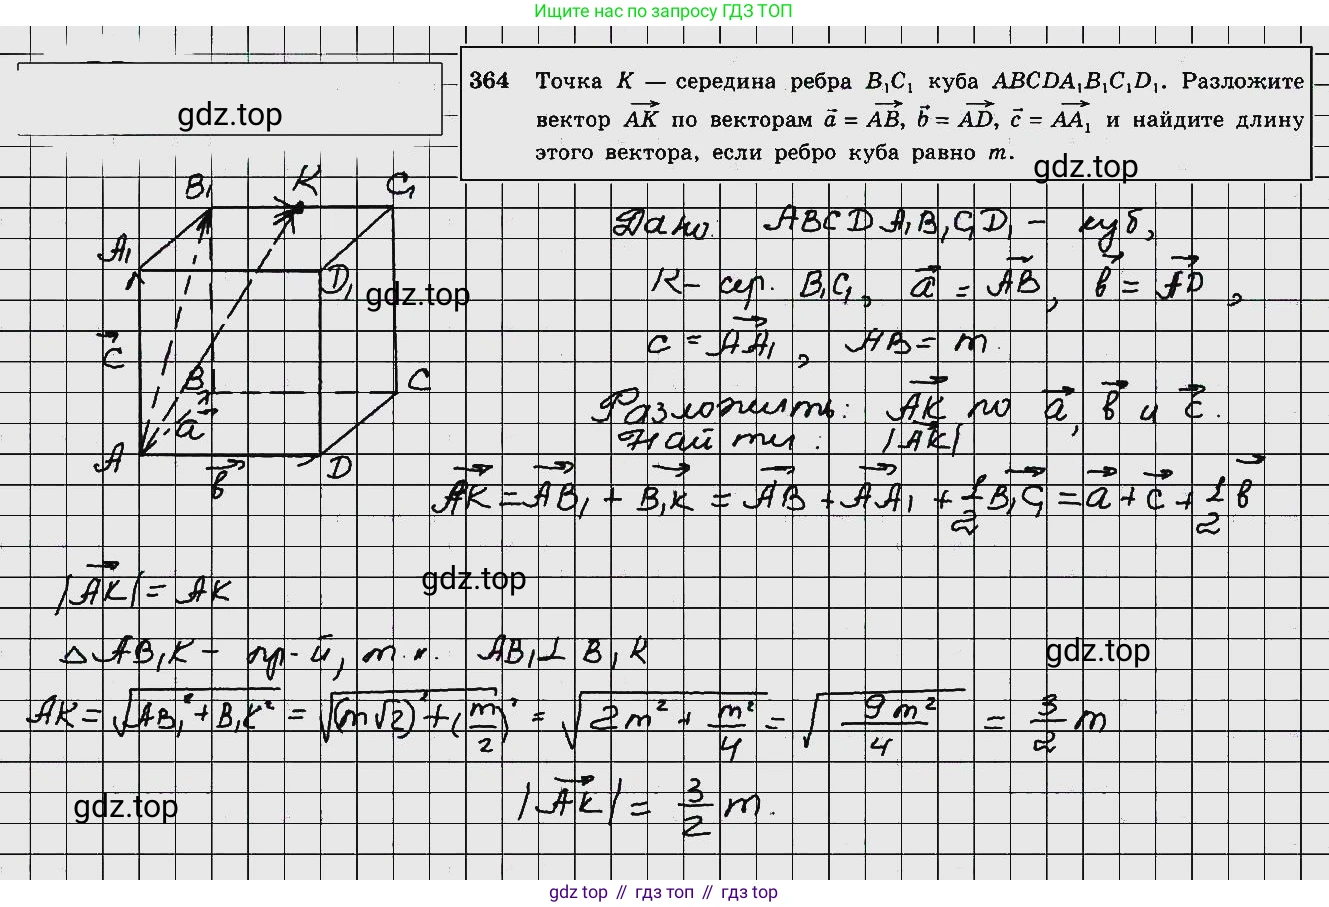 Ищите нас по запросу ГДЗ ТОП
gdz.top
364 Точка K — середина ребра B₁C₁ куба ABCDA₁B₁C₁D₁. Разложите
вектор AK⃗ по векторам a⃗ = AB⃗, b⃗ = AD⃗, c⃗ = AA₁⃗ и найдите длину
этого вектора, если ребро куба равно m.
gdz.top
B₁ K C₁
A₁ D₁
c⃗
B C
a⃗
A D
b⃗
gdz.top
Дано: ABCDA₁B₁C₁D₁ – куб,
K – сер. B₁C₁, a⃗ = AB⃗, b⃗ = AD⃗,
c = AA₁⃗, AB = m.
Разложить: AK⃗ по a⃗, b⃗ и c⃗.
Найти: |AK⃗|
AK⃗ = AB₁⃗ + B₁K⃗ = AB⃗ + AA₁⃗ + 1/2 B₁C₁⃗ = a⃗ + c⃗ + 1/2 b⃗
|AK⃗| = AK
gdz.top
△ AB₁K – пр-й, т.к. AB₁ ⊥ B₁K
gdz.top
AK = √(AB₁² + B₁K²) = √((m√2)² + (m/2)²) = √(2m² + m²/4) = √(9m²/4) = 3/2 m
gdz.top
|AK⃗| = 3/2 m.
gdz top // гдз топ // gdz top